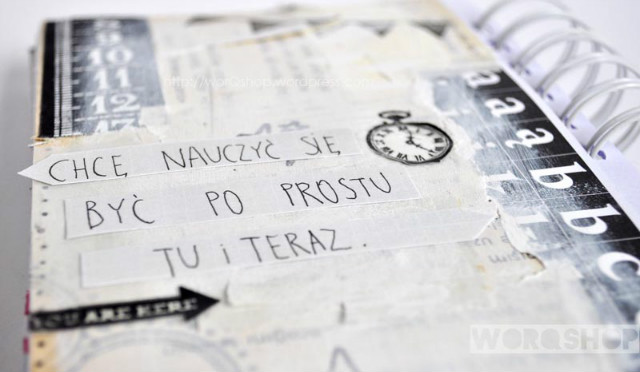 9
10
11
12
13
http://worqshop.wordpress.com
CHCĘ NAUCZYĆ SIĘ
BYĆ PO PROSTU
TU i TERAZ.
YOU ARE HERE
a a a b b c
WORQSHOP